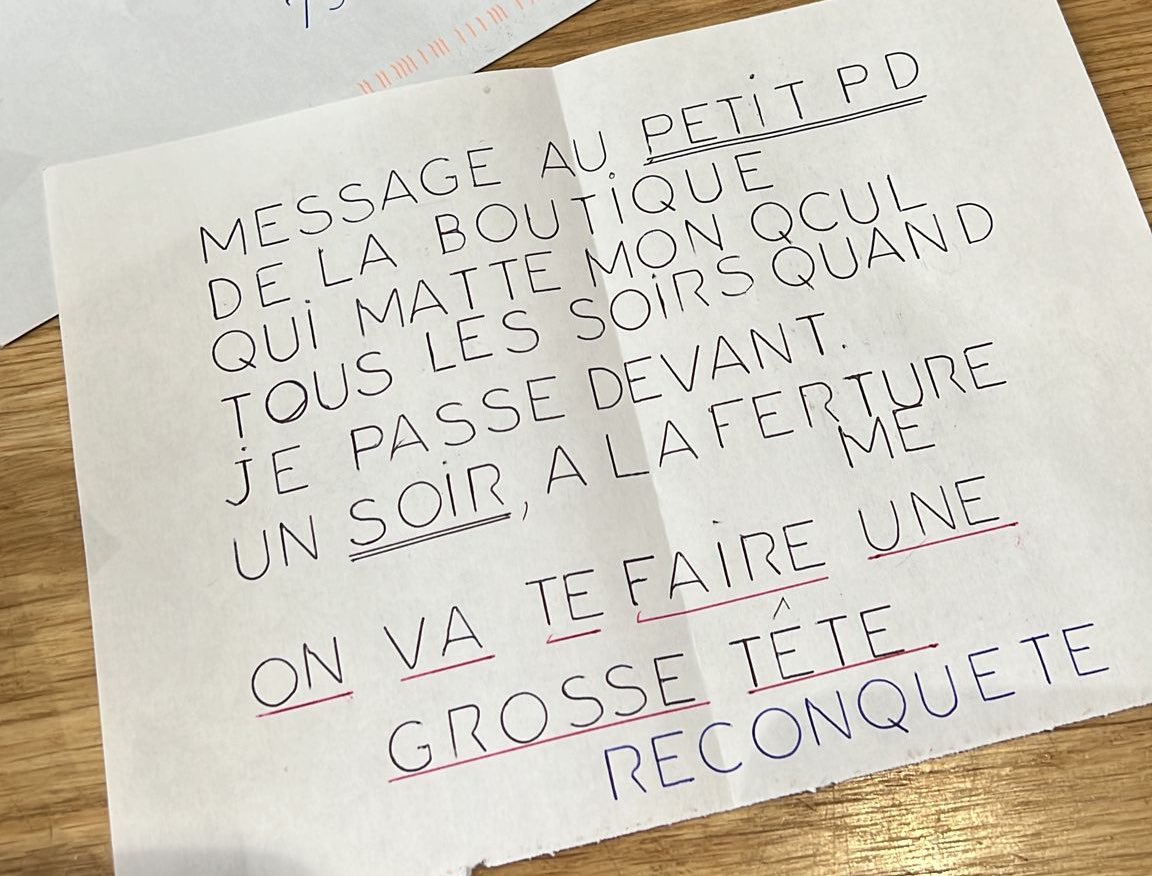 MESSAGE AU PETIT PD
DE LA BOUTIQUE
QUI MATTE MON QCUL
TOUS LES SOIRS QUAND
JE PASSE DEVANT.
UN SOIR, A LA FERTURE
ME
ON VA TE FAIRE UNE
GROSSE TÊTE
RECONQUETE